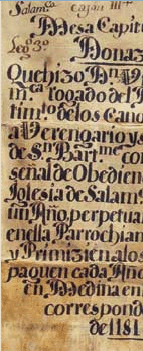 Salamca cajon III
Leg.º 3.º Mesa Capit
Donaz
Que hizo Dn
mca rogado del
timto de los Cano
a Verengario y s
de Sn Bartme con
señal de Obedien
Iglesia de Salam
un Año, perpetua
en ella Parrochian
y Primizien a los
paguen cada Año
en Medina en
correspond
de 1181